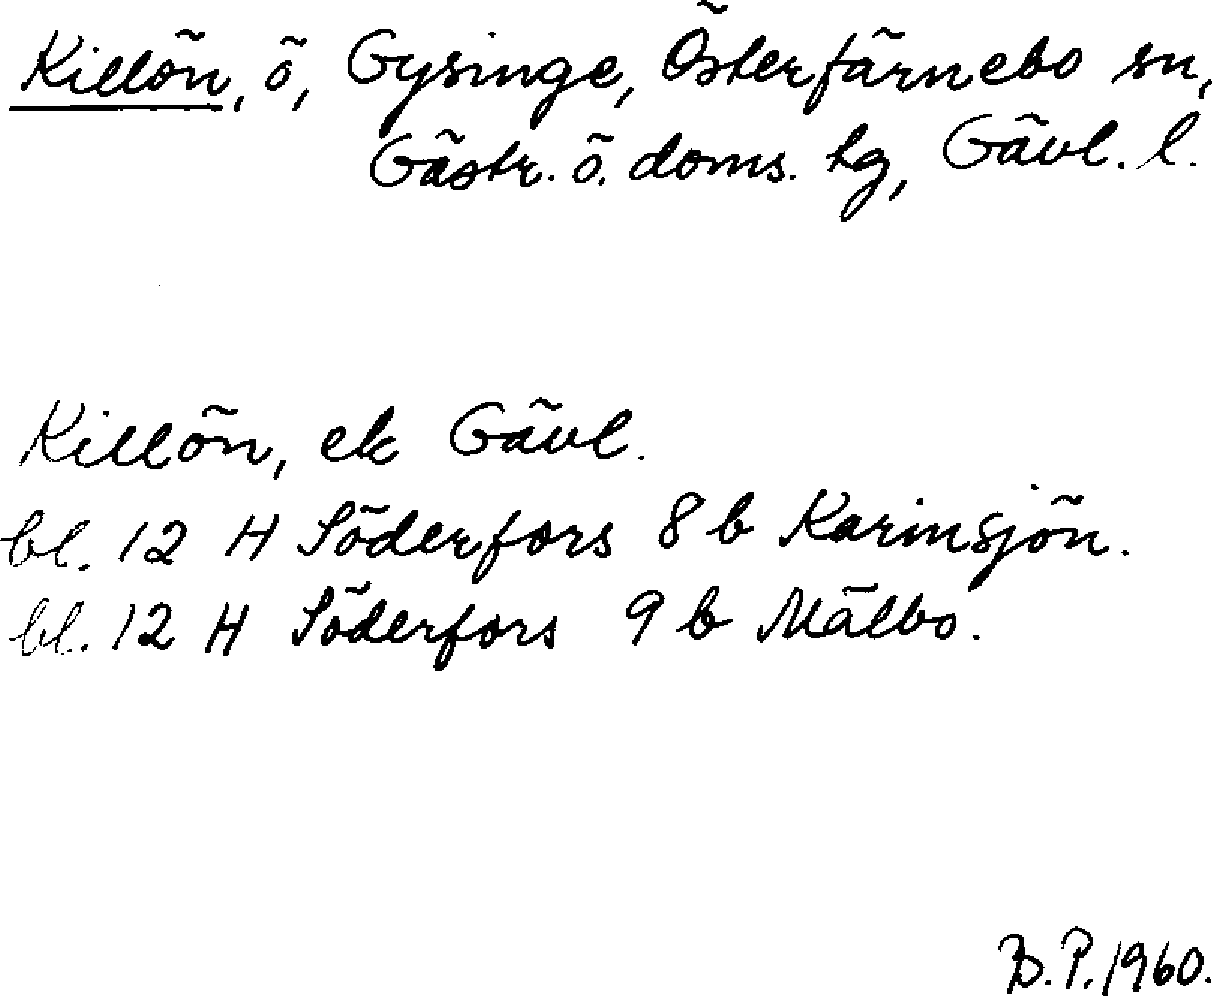 Killön, ö, Gysinge, Österfärnebo sn,
Gästr. ö. doms. tg, Gävl. l.
Killön, ek Gävl.
bl. 12 H Söderfors 8 b Karinsjön.
bl. 12 H Söderfors 9 b Mälbo.
B.P. 1960.